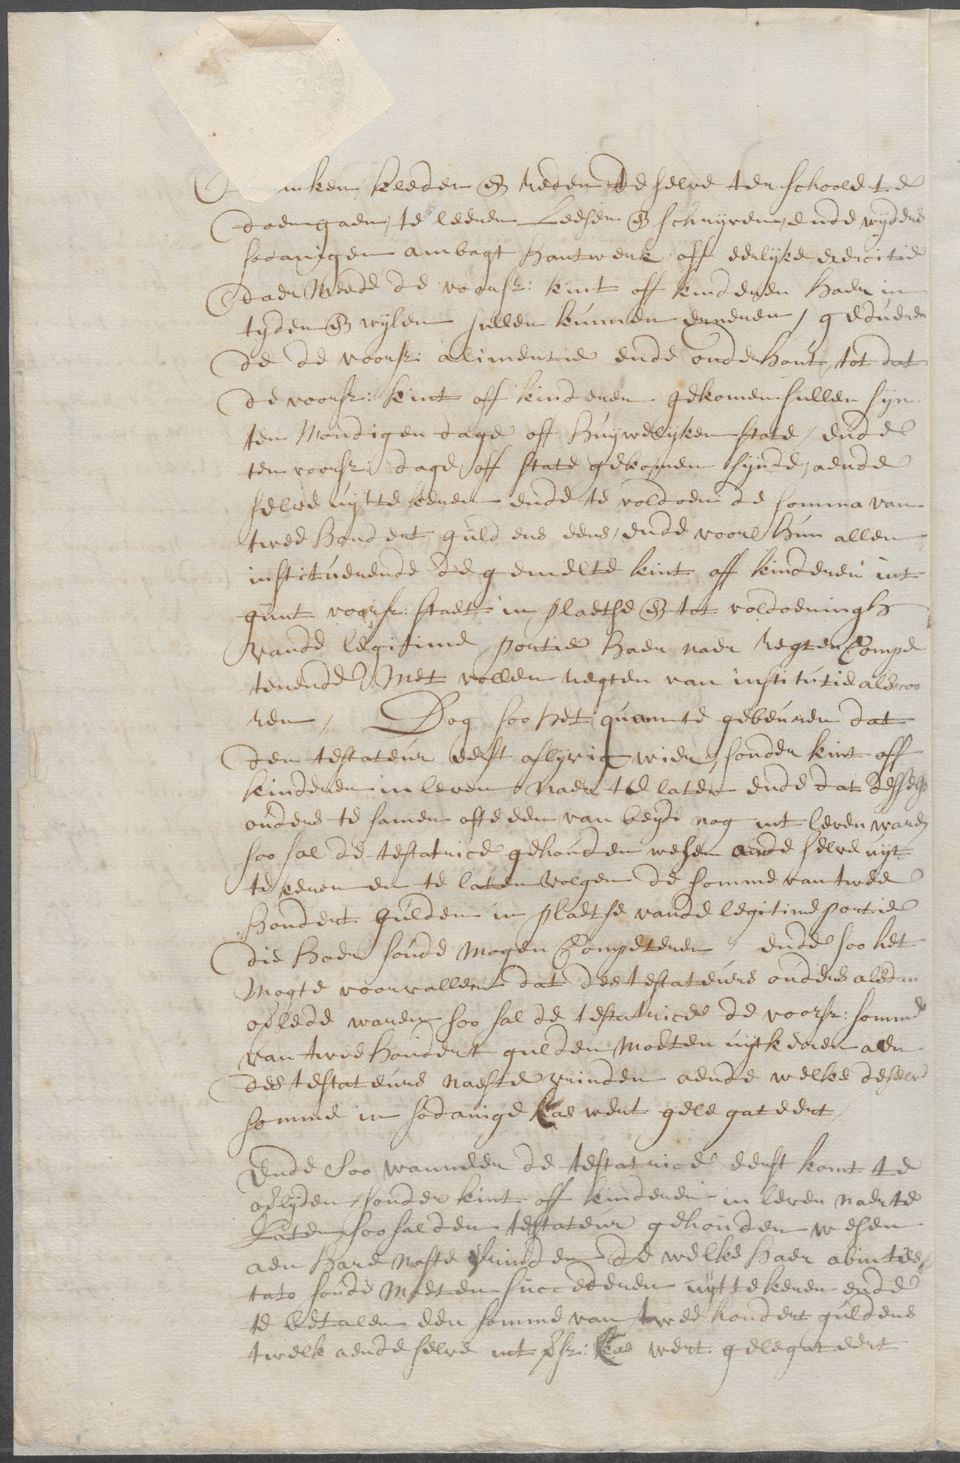 kleden & reden de selve ter schoole te
doen gaen, te leeren leesen & schrijven, ende wijders
sodanigen ambagt hantwerk off eerlijke
daer meede de voorsr: kint off kinderen haer in
tijden & wijlen sullen kunnen erneren, geduren
de de voorsr: alimentie ende onderhout, tot dat
de voorsr: kint off kinderen gekomen sullen sijn
ten mondigen dage off huijwelijken state, ende
ten voorsr: dage off state gekomen sijnde, aende
selve uijt te keren ende te voldoen de somma van
twee hondert guldens eens, ende voorts hun allen
instituerende de gemelte kint off kinderen int
gunt voorsr: staet in plaetse & tot voldoeningh
vande legitime portie haer naer regten compe
terende, met vollen regten van institutie als voo
ren, Dog soo het quamte gebeuren dat
den testateur eerst aflijvig wier, sonder kint off
kinderen in leven naer te laten ende dat desselfs
ouders te samen ofte een van beijde nog int leven waren
soo sal de testatrice gehouden wesen aende selve uijt
te keren en te laten volgen de somme van twee
hondert gulden in plaetse vande legitime portie
die haer soude mogen competeren, ende soo het
mogte voorvallen dat des testateurs ouders alsdan
overlede waren soo sal de testatrice de voorsr: somme
van twee hondert gulden moeten uijtkeren aen
des testateurs naeste vrinden aende welke deselve
somme in sodanige cas wert gelegateert,
Ende soo wanneer de testatrice eerst komt te
overlijden, sonder kint off kinderen in leven naer te
laten, soo sal den testateur gehouden wesen
aen hare naste vrinden de welke haer abintes
tato soude moeten succederen uijt te keren ende
te betalen een somme van twee hondert guldens
twelk aende selve int vsr: cas wert gelegateert